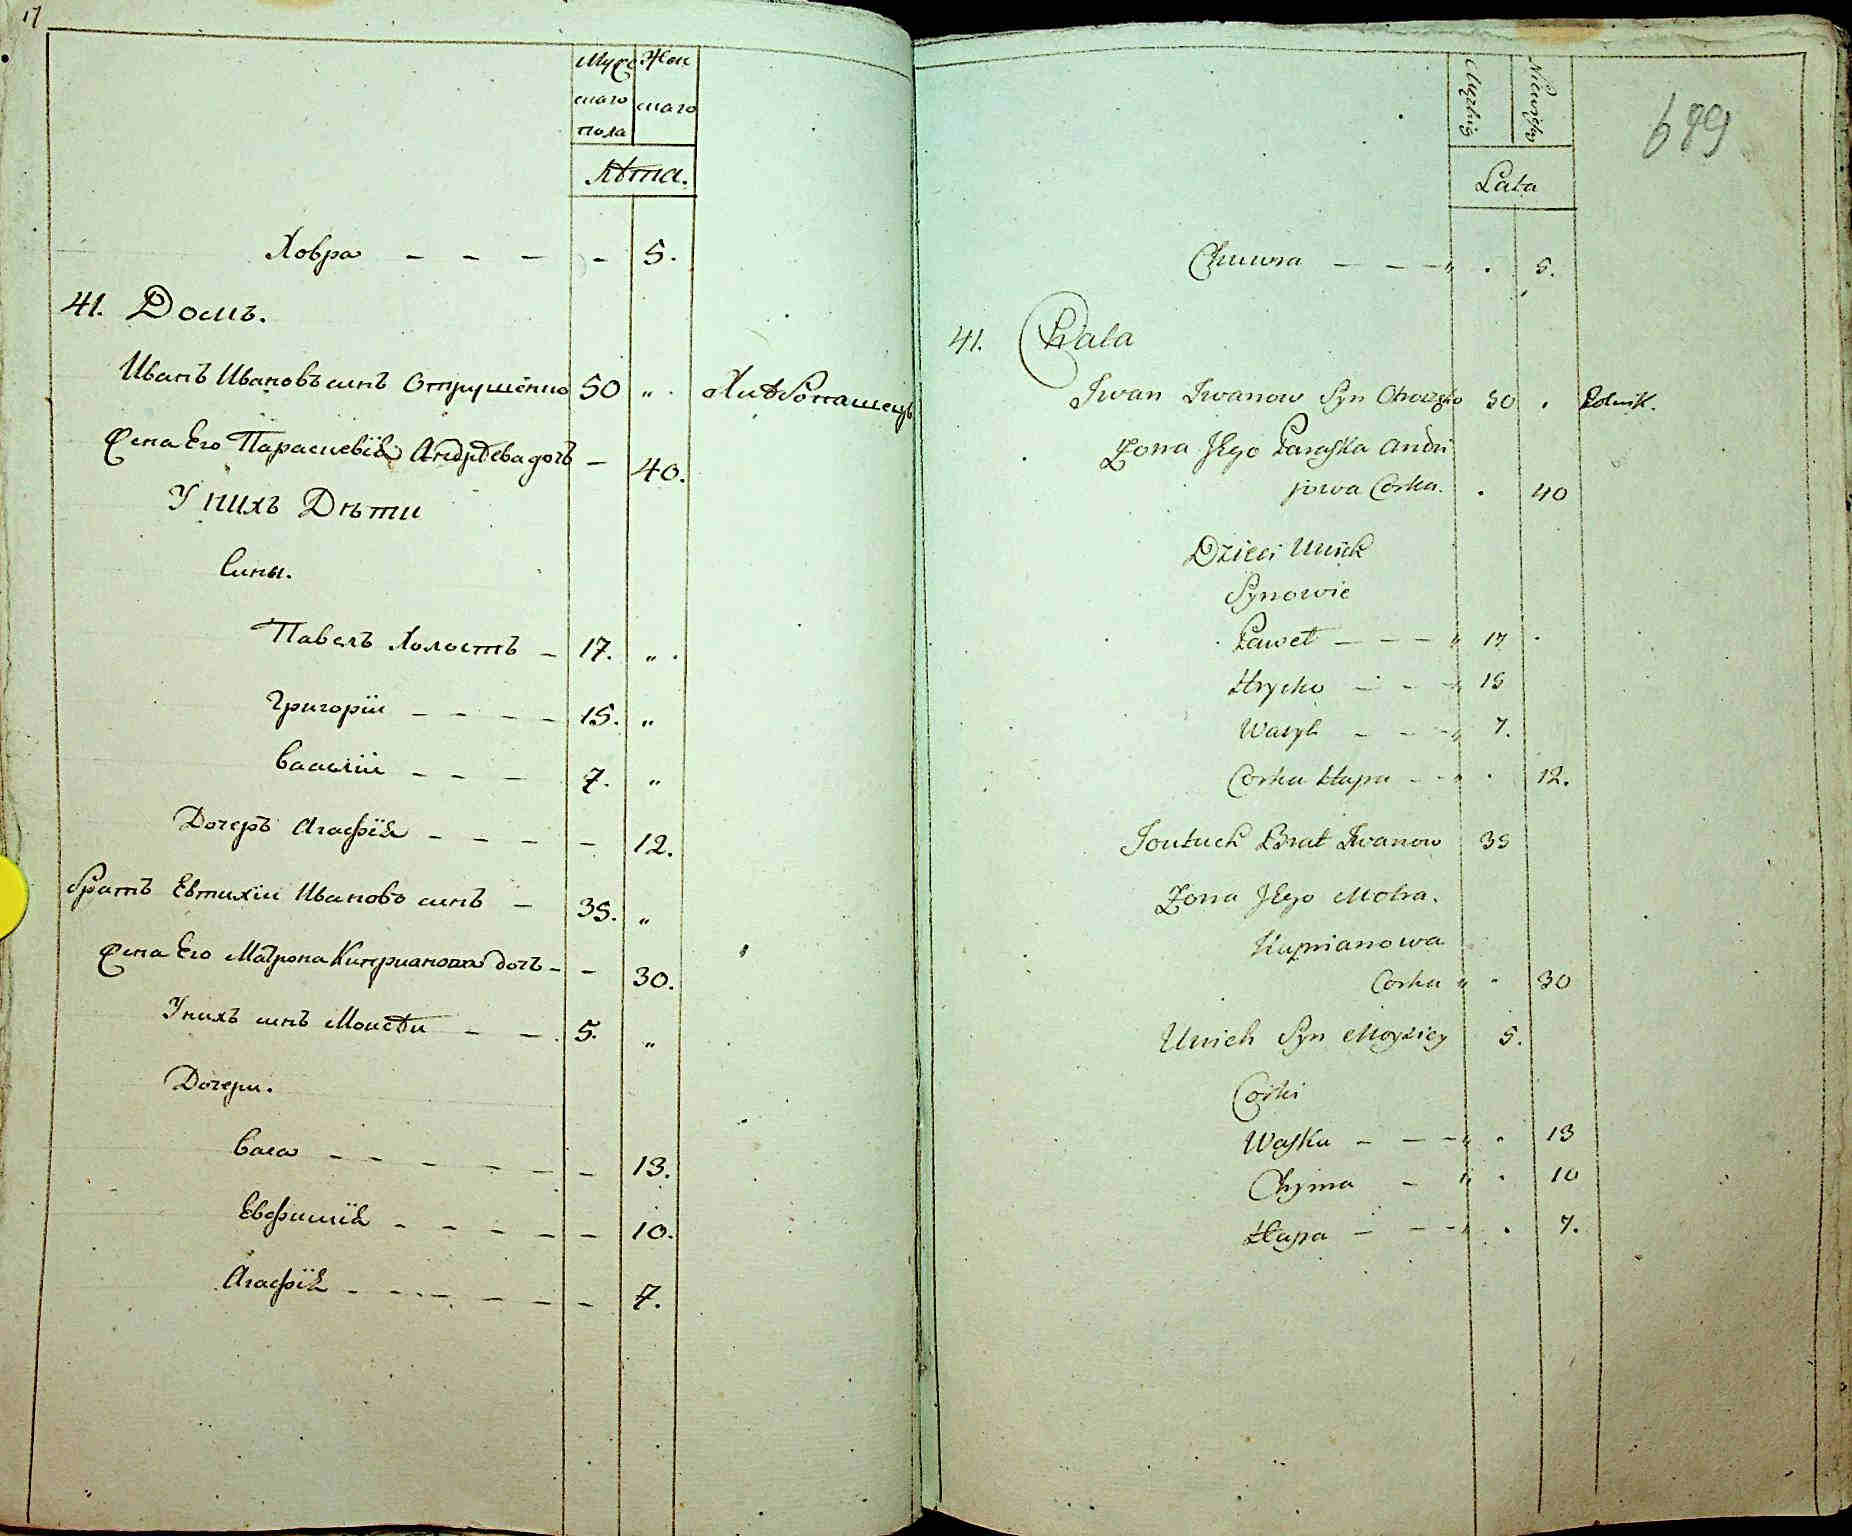 17
Муже Жен
скаго скаго
пола
Лѣта.
Ховра — — — - 5.
41. Домъ.
Иванъ Ивановъ синъ 50 „ Хлѣбопашецъ
Жена Его Параскевія Андрѣева дочъ — 40.
У нихъ Дѣти
Сины.
Павелъ Холостъ — 17. „
Григорій — — — — 15. „
Василій — — — 7. „
Дочеръ Агафія — — — — - 12.
Братъ Евтихій Ивановъ синъ — 35. „
Жена Его Матрона Киприанова дочъ - - 30.
У нихъ синъ Моисѣй — — 5. „
Дочери.
Васса — — — — — — 13.
Евфимія — — — — — — 10.
Агафія — — — — — — 7.
679
Męzkiey Niewiesciey
Lata
Chuwra — — — „ . 5.
41. Chata
Iwan Iwanow Syn 50 . Rolnik.
Żona Jego Paraska Andri
jowa Corka. . 40
Dzieci Unich
Synowie
Paweł — — — „ 17 .
Hryćko — — — „ 15
Wasyl — — — „ 7.
Corka Hapa — — „ . 12.
Jowtuch Brat Iwanow 35
Żona Jego Motra.
Kuprianowa
Corka „ . 30
Unich Syn Moyziey 5.
Corki
Waska — — — „ . 13
Chyma — „ . 10
Hapa — — — „ . 7.